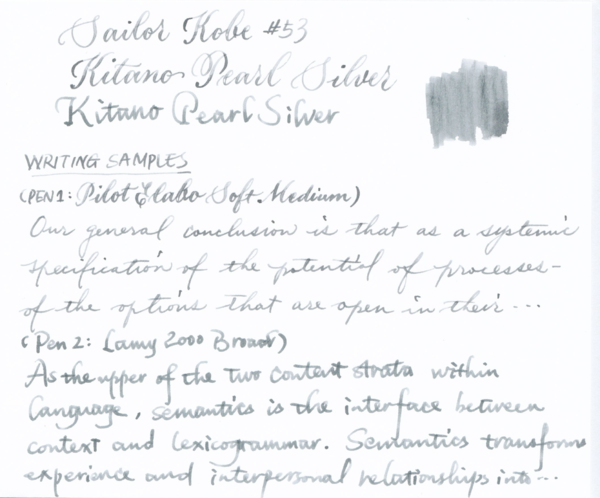 Sailor Kobe #53
Kitano Pearl Silver
Kitano Pearl Silver
WRITING SAMPLES
(PEN1: Pilot Elabo Soft Medium)
Our general conclusion is that as a systemic
specification of the potential of processes-
of the options that are open in their ...
(Pen 2: Lamy 2000 Broad)
As the upper of the two content strata within
language, semantics is the interface between
context and lexicogrammar. Semantics transforms
experience and interpersonal relationships into ...